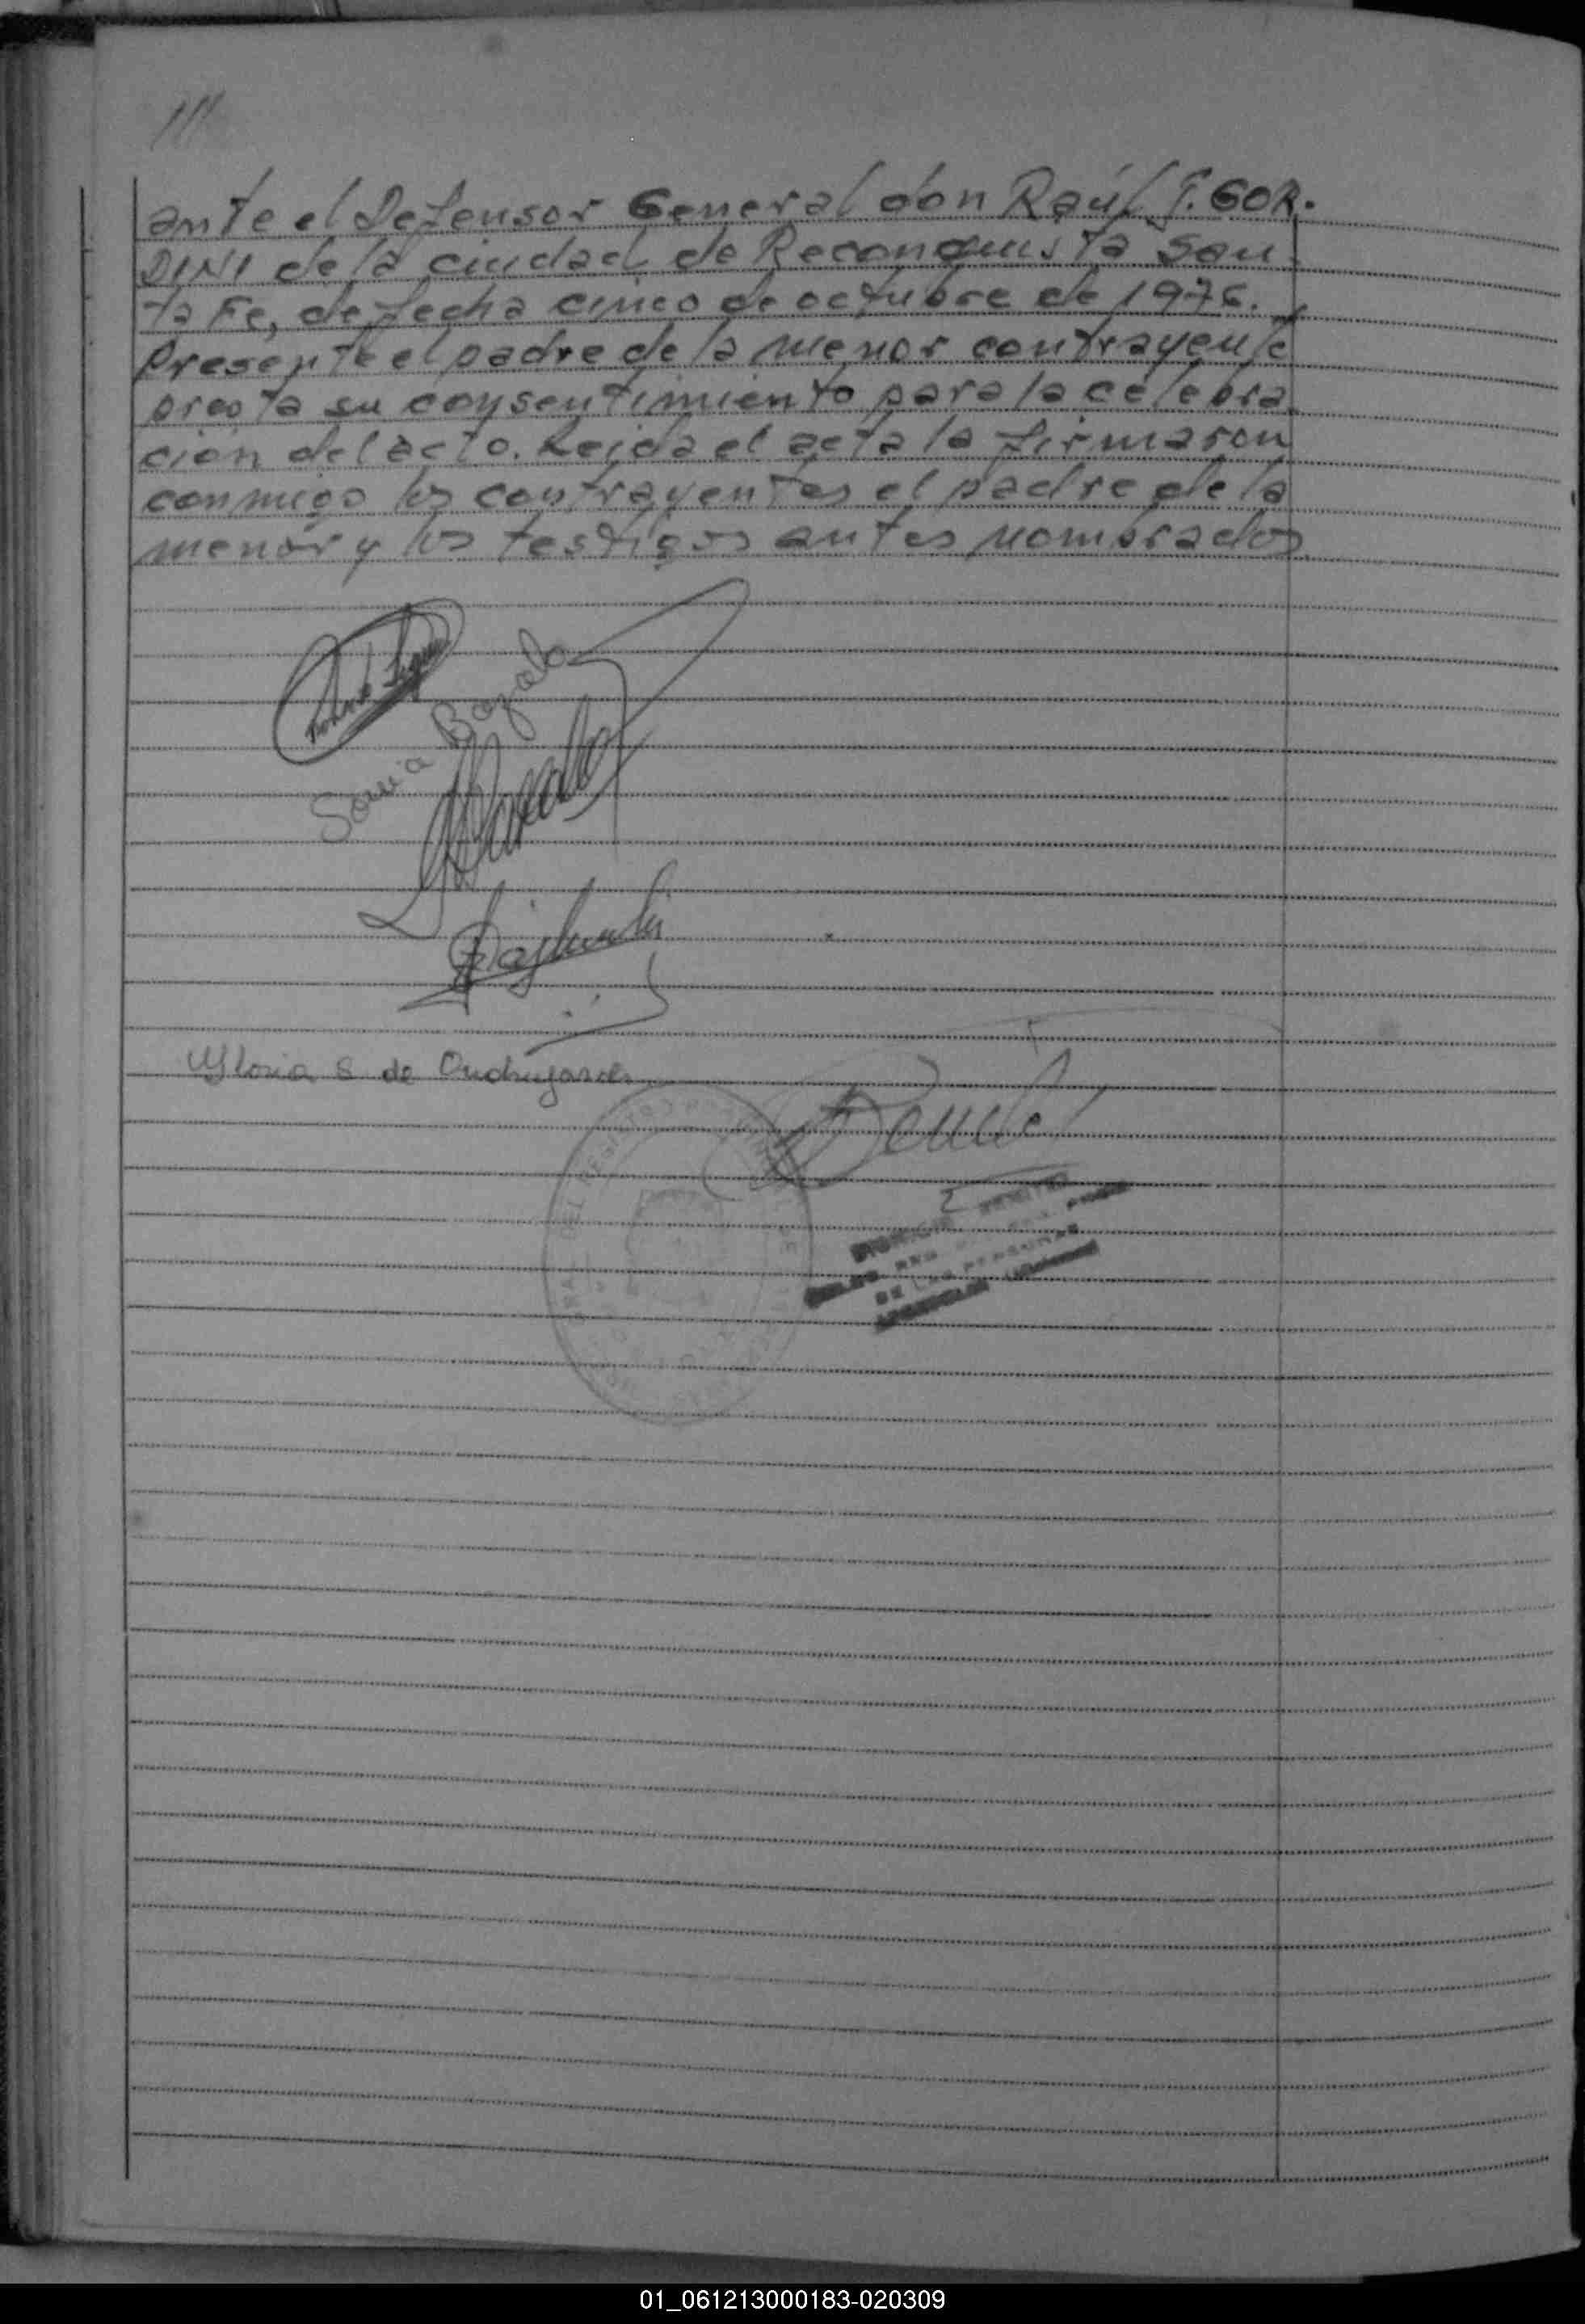 111
ante el Defensor General don Raúl J. GOR.
DINI de la ciudad de Reconquista San
ta Fe, de fecha cinco de octubre de 1976.
Presente el padre de la menor contrayente
presta su consentimiento para la celebra
ción del acto. Leida el acta la firmaron
conmigo los contrayentes el padre de la
menor y los testigos antes nombrados
Sonia Bozalo
Gloria S de
DE LAS PERSONAS
01_061213000183-020309